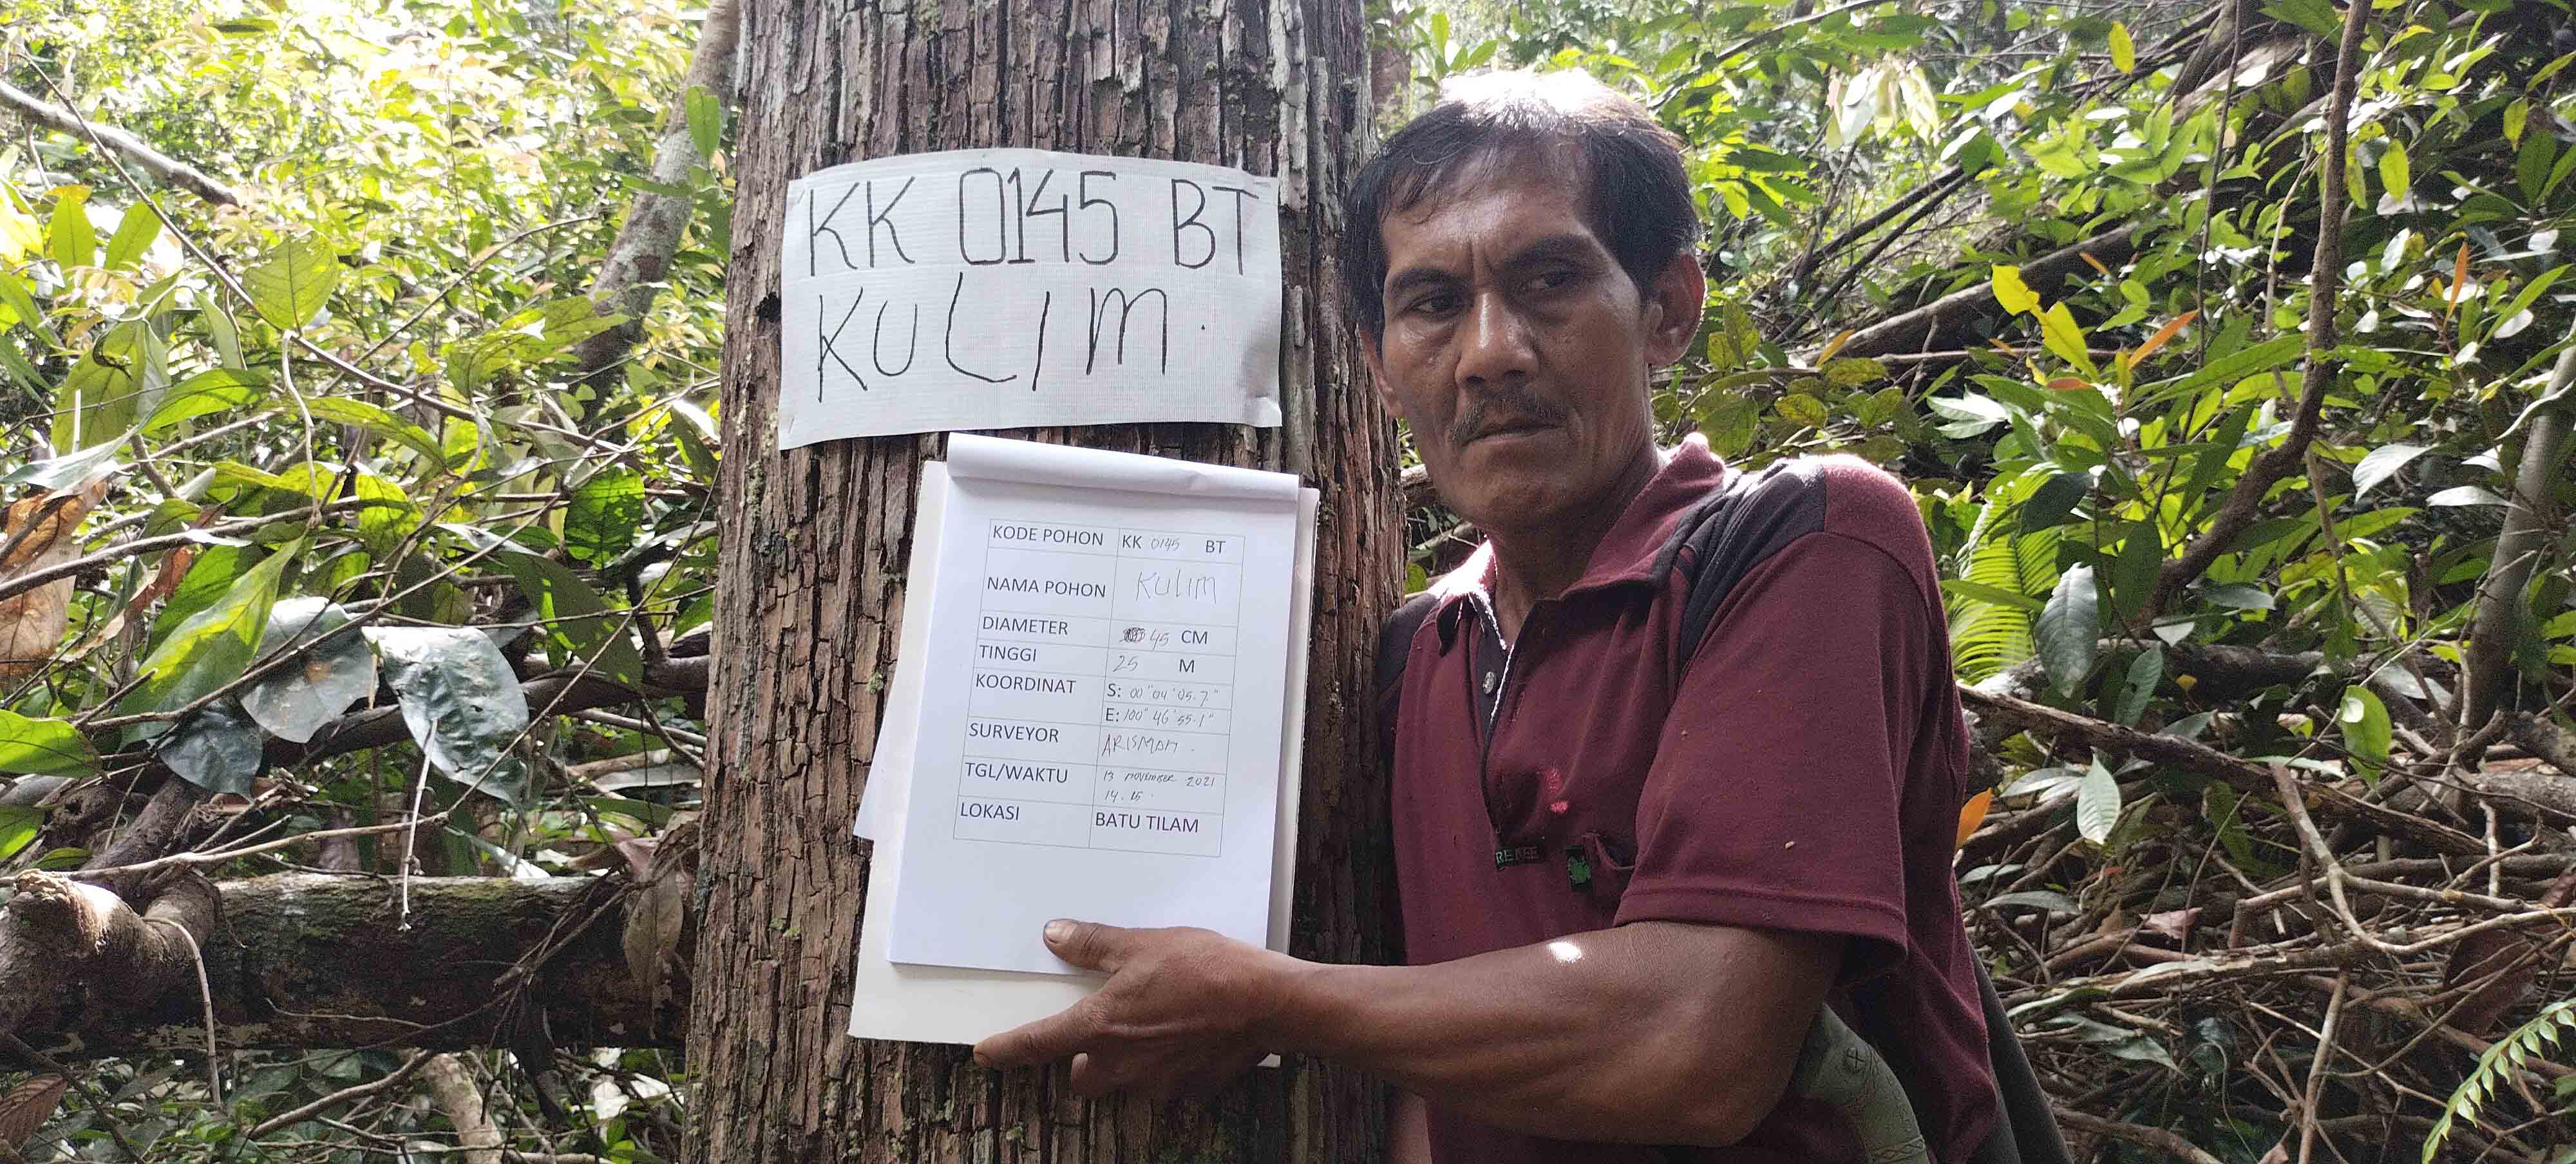 KK 0145 BT
KULIM.
KODE POHON KK 0145 BT
NAMA POHON KULIM
DIAMETER 45 CM
TINGGI 25 M
KOORDINAT S: 00°04'05.7"
E: 100°46'55.1"
SURVEYOR ARISMAN.
TGL/WAKTU 13 NOVEMBER 2021
14.15.
LOKASI BATU TILAM